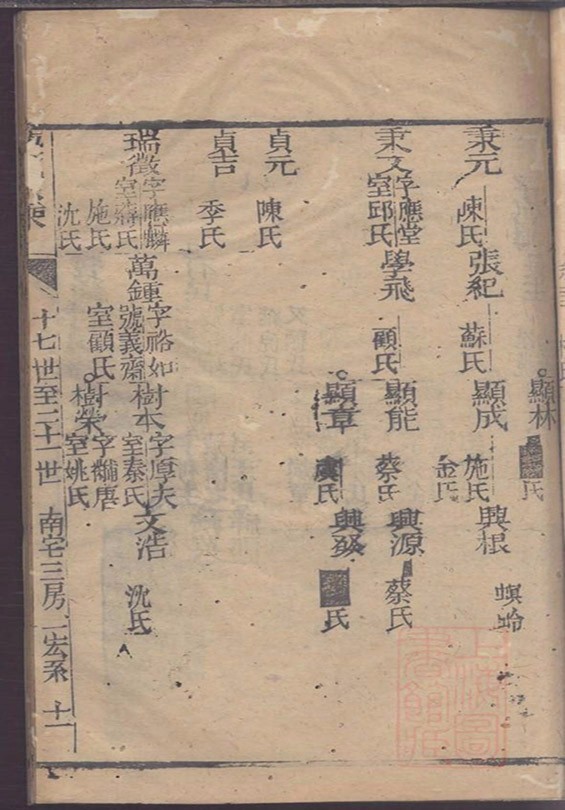 顯林
氏
秉元
陳氏
張紀
蘇氏
顯成
施氏
金氏
興根
螟蛉
秉文
字應堂
室邱氏
學飛
顧氏
顯能
蔡氏
興源
蔡氏
顯章
氏
興發
氏
貞元
陳氏
貞吉
季氏
瑞徵
字應麟
室蔣氏
施氏
沈氏
萬鍾
字裕如
號義齋
室顧氏
樹本
字厚夫
室秦氏
文浩
沈氏
樹榮
字黼唐
室姚氏
十七世至二十一世
南宅三房
一宏系
十一
上海圖書館藏